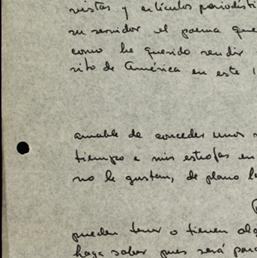 vistas y artículos periodísti
su servidor el poema que
como he querido rendir
rito de América en este 1
amable de conceder unos m
tiempo a mis estrofas en
no le gustan, de plano l
pueden tener o tienen alg
haga saber pues será para